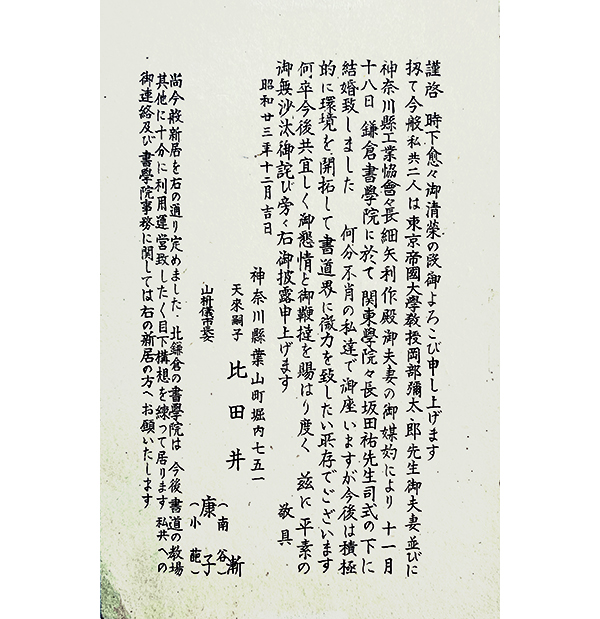 謹啓 時下愈々御清榮の段御よろこび申し上げます
扨て今般私共二人は東京帝國大學敎授岡部彌太郎先生御夫妻並びに
神奈川縣工業協會々長細矢利作殿御夫妻の御媒妁により 十一月
十八日 鎌倉書學院に於て 関東學院々長坂田祐先生司式の下に
結婚致しました 何分不肖の私達で御座いますが今後は積極
的に環境を開拓して書道界に微力を致したい所存でございます
何卒今後共宜しく御懇情と御鞭撻を賜はり度く 茲に平素の
御無沙汰御詫び旁々右御披露申上げます 敬具
昭和廿三年十二月吉日
神奈川縣葉山町堀内七五一
天來嗣子 比田井 漸
(南谷)
康子
(小葩)
尚今般新居を右の通り定めました.北鎌倉の書學院は 今後書道の教場
其他に十分に利用運営致したく目下構想を練つて居ります 私共への
御連絡及び書學院事務に関しては右の新居の方へお願いたします